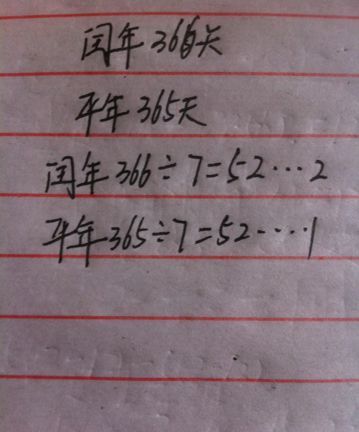 闰年366天
平年365天
闰年366÷7=52…2
平年365÷7=52…·1